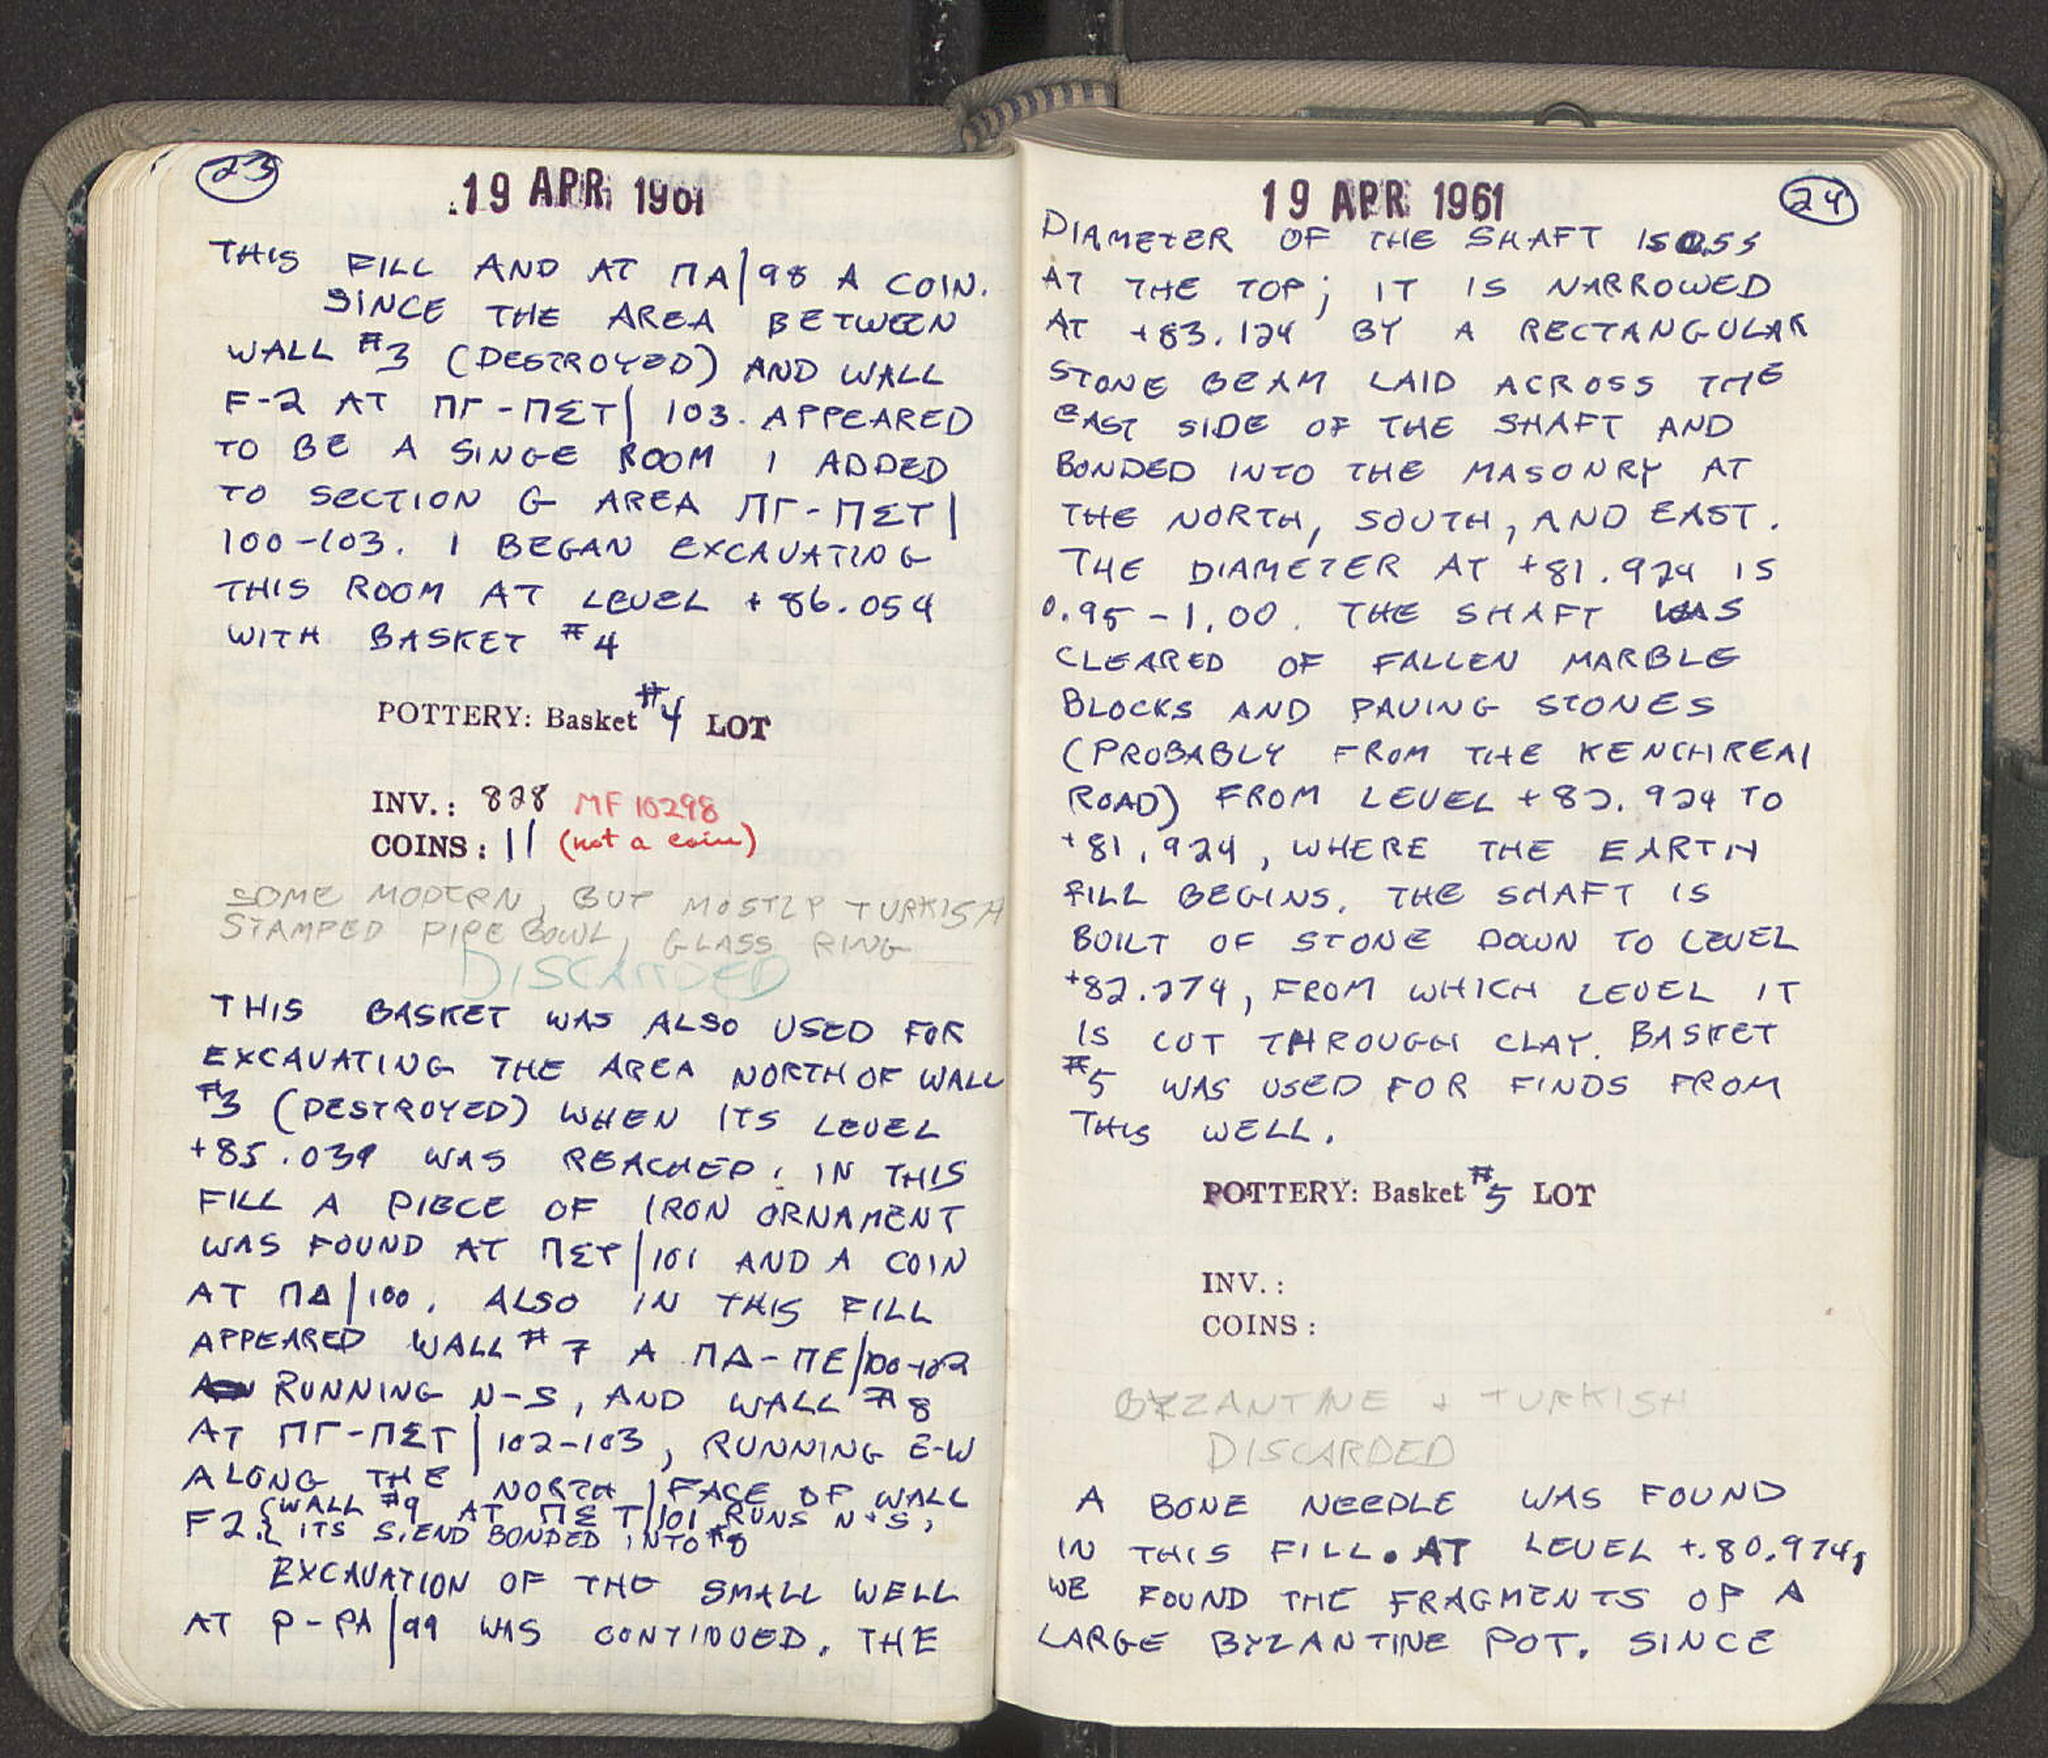 23
19 APR 1961
THIS FILL AND AT ΠΑ|98 A COIN.
SINCE THE AREA BETWEEN
WALL #3 (DESTROYED) AND WALL
F-2 AT ΠΓ-ΠΣΤ| 103. APPEARED
TO BE A SINGE ROOM I ADDED
TO SECTION G AREA ΠΓ-ΠΣΤ|
100-103. I BEGAN EXCAVATING
THIS ROOM AT LEVEL +86.054
WITH BASKET #4
POTTERY: Basket #4 LOT
INV.: 828 MF 10298
COINS: 11 (not a coin)
SOME MODERN, BUT MOSTLY TURKISH
STAMPED PIPE BOWL, GLASS RING
DISCARDED
THIS BASKET WAS ALSO USED FOR
EXCAVATING THE AREA NORTH OF WALL
#3 (DESTROYED) WHEN ITS LEVEL
+85.039 WAS REACHED. IN THIS
FILL A PIECE OF IRON ORNAMENT
WAS FOUND AT ΠΣΤ|101 AND A COIN
AT ΠΔ|100. ALSO IN THIS FILL
APPEARED WALL #7 A ΠΔ-ΠΕ|100-102
RUNNING N-S, AND WALL #8
AT ΠΓ-ΠΣΤ|102-103, RUNNING E-W
ALONG THE NORTH FACE OF WALL
F2. {WALL #9 AT ΠΣΤ|101 RUNS N-S,
{ITS S. END BONDED INTO #8
EXCAVATION OF THE SMALL WELL
AT Ρ-ΡΑ|99 WAS CONTINUED. THE
24
19 APR 1961
DIAMETER OF THE SHAFT IS 0.55
AT THE TOP; IT IS NARROWED
AT +83.124 BY A RECTANGULAR
STONE BEAM LAID ACROSS THE
EAST SIDE OF THE SHAFT AND
BONDED INTO THE MASONRY AT
THE NORTH, SOUTH, AND EAST.
THE DIAMETER AT +81.924 IS
0.95-1.00. THE SHAFT WAS
CLEARED OF FALLEN MARBLE
BLOCKS AND PAVING STONES
(PROBABLY FROM THE KENCHREAI
ROAD) FROM LEVEL +82.924 TO
+81.924, WHERE THE EARTH
FILL BEGINS. THE SHAFT IS
BUILT OF STONE DOWN TO LEVEL
+82.274, FROM WHICH LEVEL IT
IS CUT THROUGH CLAY. BASKET
#5 WAS USED FOR FINDS FROM
THIS WELL.
POTTERY: Basket #5 LOT
INV.:
COINS:
BYZANTINE + TURKISH
DISCARDED
A BONE NEEDLE WAS FOUND
IN THIS FILL. AT LEVEL +.80.974,
WE FOUND THE FRAGMENTS OF A
LARGE BYZANTINE POT. SINCE